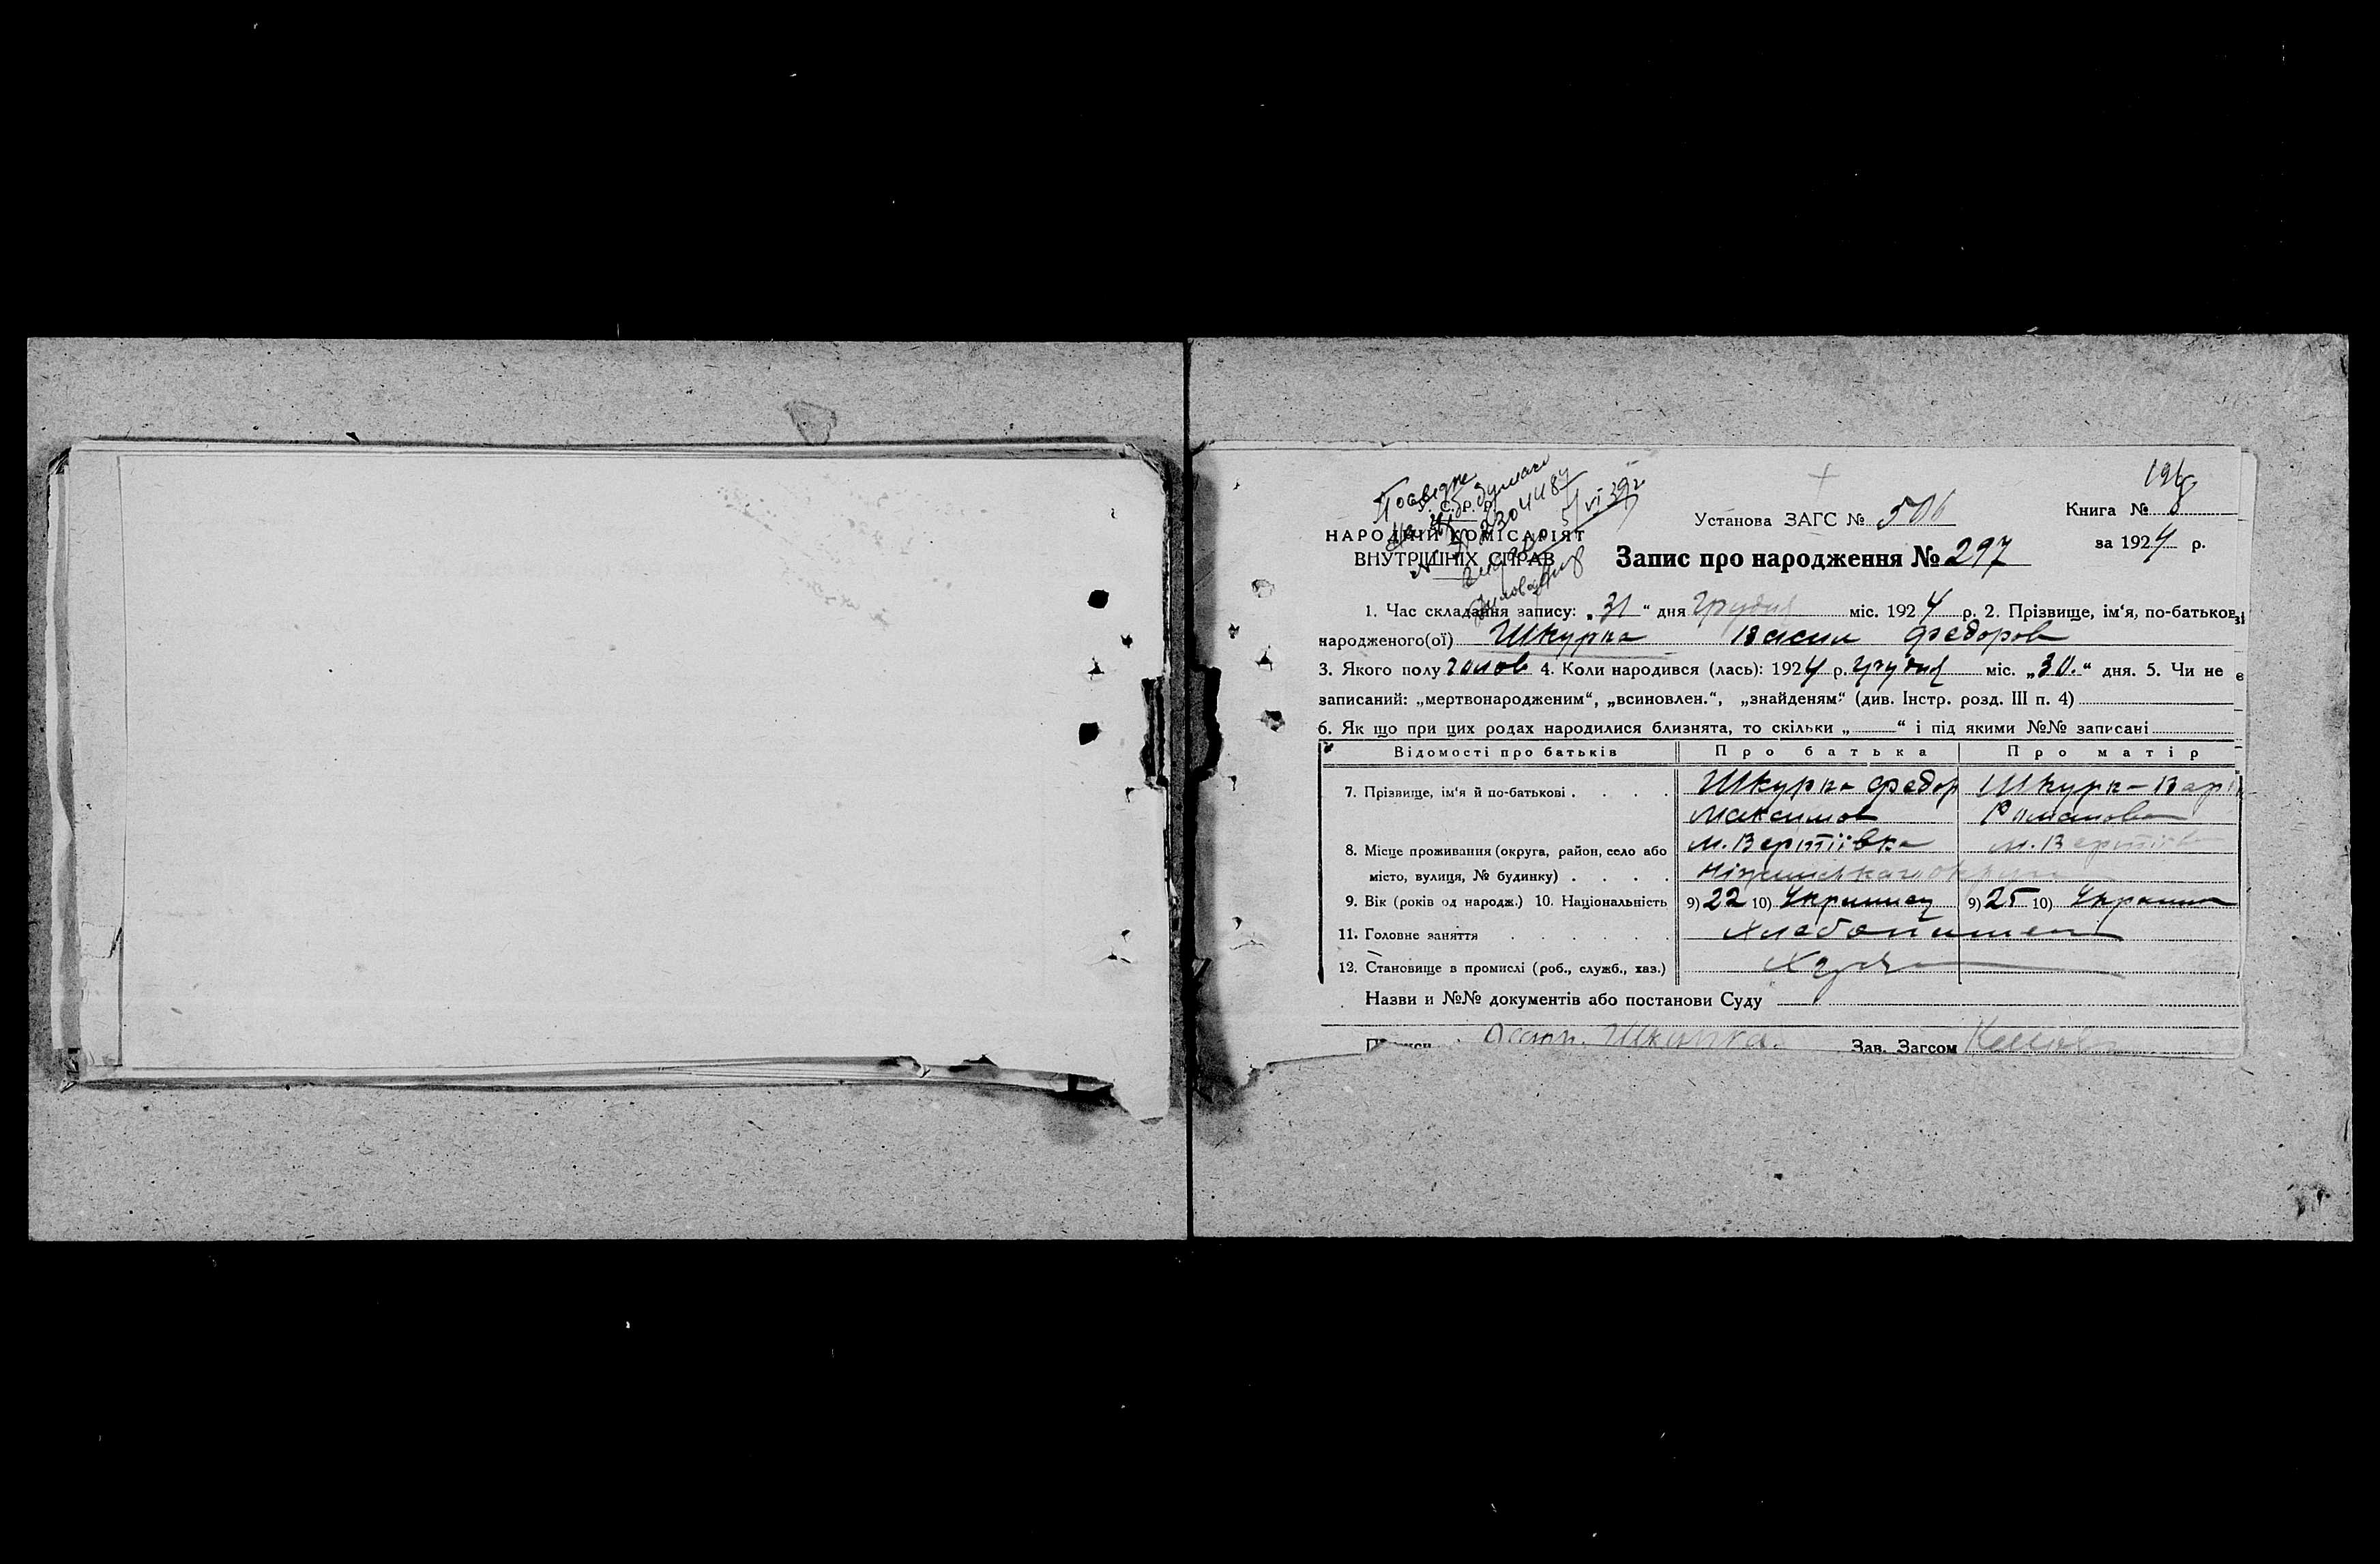 196
Посвідче
У. С. Р. Р.
2304487
5/VI 39 р
НАРОДНІЙ КОМІСАРІЯТ
ВНУТРІШНІХ СПРАВ
Установа ЗАГС № 506
Книга №
за 1924 р.
Запис про народження № 297
1. Час складання запису: „31“ дня Грудня міс. 1924 р. 2. Прізвище, ім‘я, по-батькові
народженого(ої) Шкурка Васил Федоров
3. Якого полу чолов 4. Коли народився (лась): 1924 р. грудня міс. „30.“ дня. 5. Чи не є
записаний: „мертвонародженим“, „всиновлен.“, „знайденям“ (див. Інстр. розд. III п. 4)
6. Як що при цих родах народилися близнята, то скільки „ “ і під якими №№ записані
Відомості про батьків Про батька Про матір
7. Прізвище, ім‘я й по-батькові . . . . Шкурка Федор Шкурка Варв
Максимов Романова
8. Місце проживання (округа, район, село або м. Вертіївка м. Вертіївка
місто, вулиця, № будинку) . . . . Ніжинського округи
9. Вік (років од народж.) 10. Національність 9) 22 10) Українец 9) 25 10) Украин
11. Головне заняття . . . . . . Хлебопашец
12. Становище в промислі (роб., служб., хаз.)
Назви и №№ документів або постанови Суду
Зав. Загсом